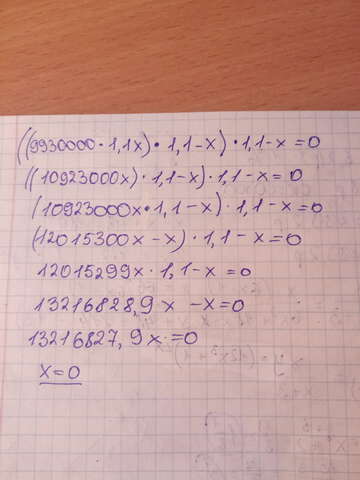 ((9930000·1,1x)·1,1-x)·1,1-x=0
((10923000x)·1,1-x)·1,1-x=0
(10923000x·1,1-x)·1,1-x=0
(12015300x-x)·1,1-x=0
12015299x·1,1-x=0
13216828,9x-x=0
13216827,9x=0
x=0